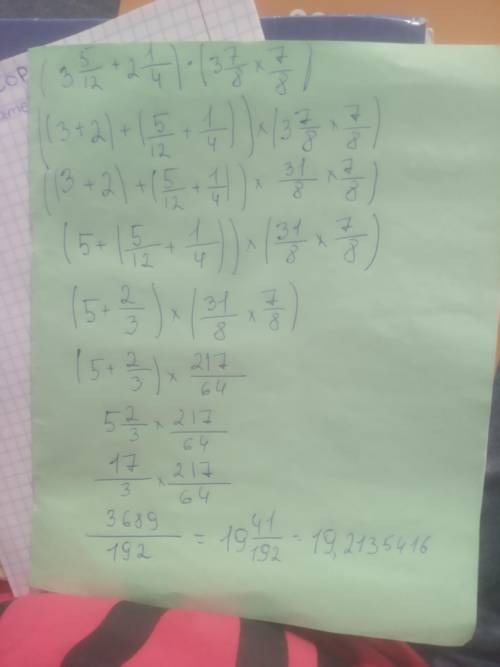 COP
(3 5/12 + 2 1/4) · (3 7/8 × 7/8)
((3+2) + (5/12 + 1/4)) × (3 7/8 × 7/8)
((3+2) + (5/12 + 1/4)) × 31/8 × 7/8)
(5 + (5/12 + 1/4)) × (31/8 × 7/8)
(5 + 2/3) × (31/8 × 7/8)
(5 + 2/3) × 217/64
5 2/3 × 217/64
17/3 × 217/64
3689/192 = 19 41/192 = 19,2135416